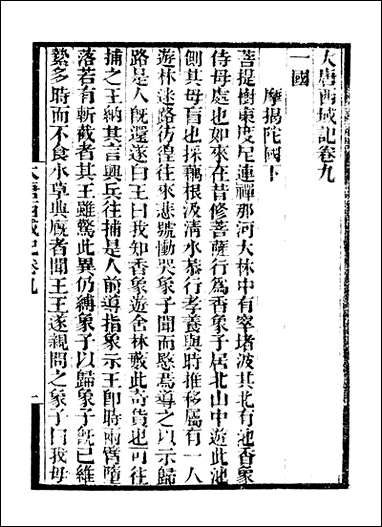 大唐西域記卷九
一國
摩揭陀國下
菩提樹東度尼連禪那河大林中有窣堵波其北有池香象
侍母處也如來在昔修菩薩行爲香象子居北山中遊此池
側其母盲也採藕根汲清水恭行孝養與時推移屬有一人
遊林迷路彷徨往來悲號慟哭象子聞而愍焉導之以示歸
路是人旣還遂白王曰我知香象遊舍林藪此奇貨也可往
捕之王納其言興兵往捕是人前導指象示王卽時兩臂墮
落若有斬截者其王雖驚此異仍縛象子以歸象子旣已維
縶多時而不食水草典廄者聞王王遂親問之象子曰我母
大唐西域記卷九
一